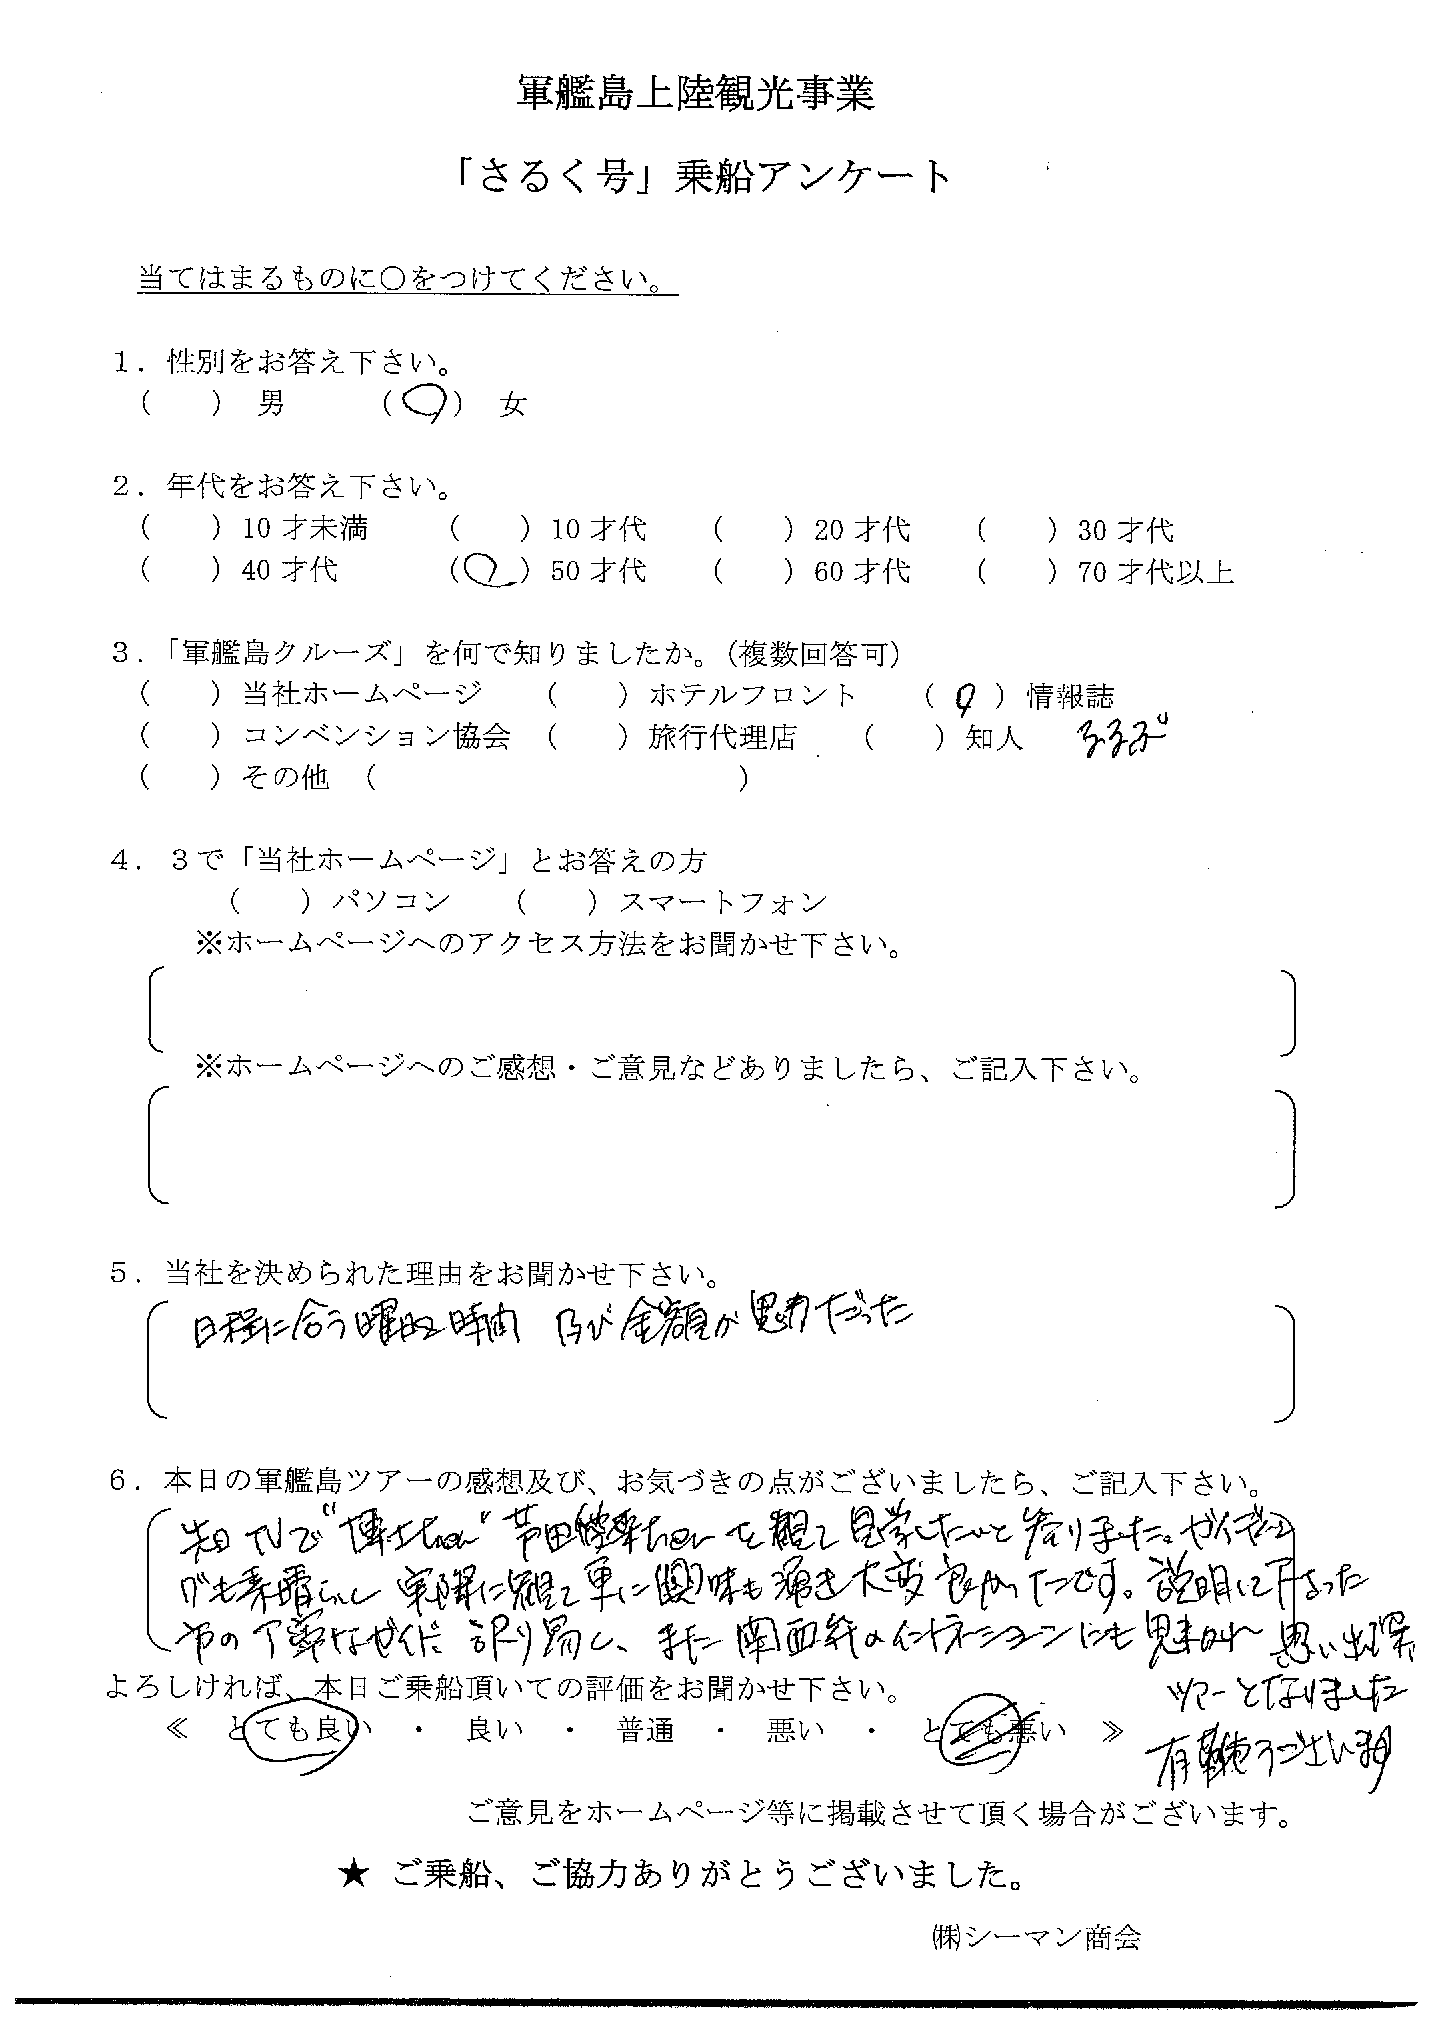 軍艦島上陸観光事業
「さるく号」乗船アンケート
当てはまるものに〇をつけてください。
１．性別をお答え下さい。
（　　）男　　（〇）女
２．年代をお答え下さい。
（　　）10才未満　　（　　）10才代　　（　　）20才代　　（　　）30才代
（　　）40才代　　（〇）50才代　　（　　）60才代　　（　　）70才代以上
３．「軍艦島クルーズ」を何で知りましたか。（複数回答可）
（　　）当社ホームページ　　（　　）ホテルフロント　　（〇）情報誌
（　　）コンベンション協会　（　　）旅行代理店　　（　　）知人　るるぶ
（　　）その他　（　　　　　　　　　　　　）
４．３で「当社ホームページ」とお答えの方
（　　）パソコン　　（　　）スマートフォン
※ホームページへのアクセス方法をお聞かせ下さい。
※ホームページへのご感想・ご意見などありましたら、ご記入下さい。
５．当社を決められた理由をお聞かせ下さい。
日程に合う曜日と時間　及び金額が魅力だった
６．本日の軍艦島ツアーの感想及び、お気づきの点がございましたら、ご記入下さい。
先日TVで"博士ちゃん"芦田愛菜ちゃんを観て見学したいと参りました。ガイド
も素晴らしく実際に観て更に興味も湧き大変良かったです。説明して下さった
方の丁寧なガイド　語り　、また関西弁のイントネーションにも魅かれ　思い出深い
よろしければ、本日ご乗船頂いての評価をお聞かせ下さい。
ツアーとなりました
≪　とても良い　・　良い　・　普通　・　悪い　・　とても悪い　≫
有難うございます
ご意見をホームページ等に掲載させて頂く場合がございます。
★ ご乗船、ご協力ありがとうございました。
㈱シーマン商会